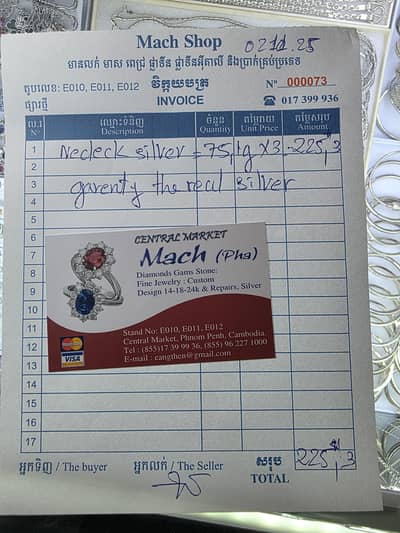 Mach Shop
02.11.25
មានលក់ មាស ពេជ្រ ផ្លាទីន ផ្លាទីនអ៊ីតាលី និងប្រាក់គ្រប់ប្រភេទ
តូបលេខ: E010, E011, E012
វិក្កយបត្រ
Nº 000073
ផ្សារថ្មី
INVOICE
☎ 017 399 936
ល.រ ឈ្មោះទំនិញ ចំនួន តម្លៃរាយ តម្លៃសរុប
Nº Description Quantity Unit Price Amount
1 Necleck silver = 75,1g x3 = 225,3
2
3 garenty the real silver
4
5
6
7
8
9
10
11
12
13
14
15
16
17
CENTRAL MARKET
Mach (Pha)
Diamonds Gams Stone:
Fine Jewelry : Custom
Design 14-18-24k & Repairs, Silver
MasterCard
VISA
Stand No: E010, E011, E012
Central Market, Phnom Penh, Cambodia.
Tel : (855)17 39 99 36, (855) 96 227 1000
E-mail : eangthen@gmail.com
អ្នកទិញ / The buyer
អ្នកលក់ / The Seller
សរុប
TOTAL
225,3